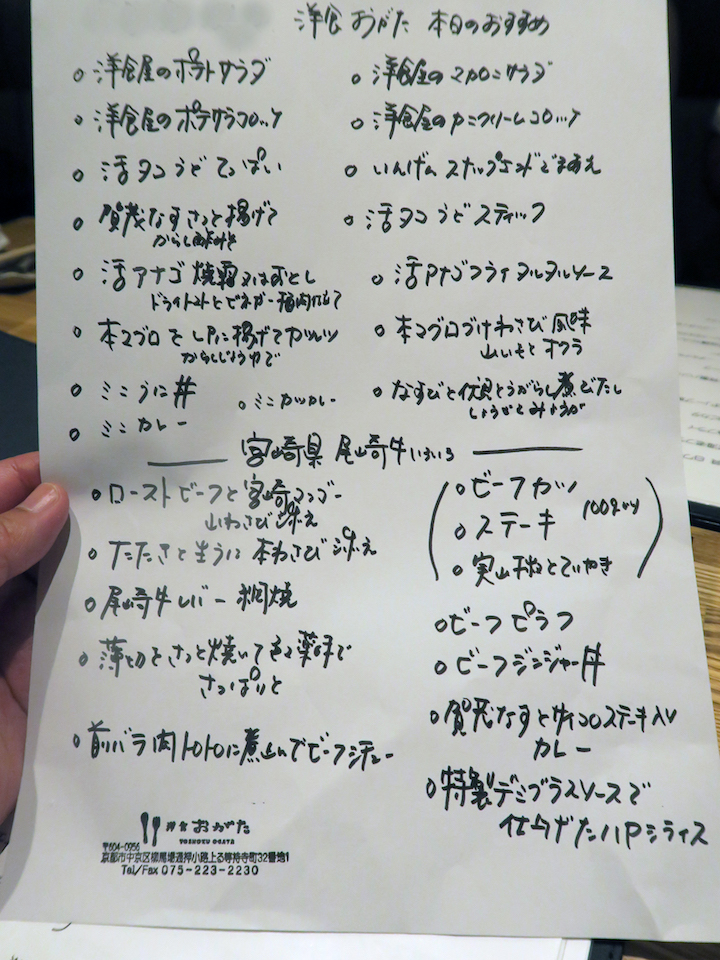 洋食 おがた 本日のおすすめ
○ 洋食屋のポテトサラダ
○ 洋食屋のポテサラコロッケ
○ 活タコ うど てっぱい
○ 賀茂なすさっと揚げて
からし
○ 活アナゴ 焼霜又はおとし
ドライトマトとビネガー 梅肉
○ 本マグロをレアに揚げてカツレツ
からしじょうゆで
○ ミニうに丼
○ ミニカツカレー
○ ミニカレー
○ 洋食屋のマカロニサラダ
○ 洋食屋のカニクリームコロッケ
○ いんげん スナップエンドウごまあえ
○ 活タコ うど スティック
○ 活アナゴフライ タルタルソース
○ 本マグロづけわさび風味
山いもとオクラ
○ なすびと伏見とうがらし煮びたし
しょうがとみょうが
宮崎県 尾崎牛いろいろ
○ ローストビーフと宮崎マンゴー
山わさび添え
○ たたきと生うに 本わさび添え
○ 尾崎牛レバー 網焼
○ 薄切をさっと焼いて 薬味で
さっぱりと
○ 前バラ肉トロトロに煮込んでビーフシチュー
○ ビーフカツ
○ ステーキ
100gより
○ 実山椒とていやき
○ ビーフピラフ
○ ビーフジンジャー丼
○ 賀茂なすとサイコロステーキ入り
カレー
○ 特製デミグラスソースで
仕上げたハヤシライス
洋食 おがた
YOSHOKU OGATA
〒604-0956
京都市中京区柳馬場通押小路上る等持寺町32番地1
Tel/Fax 075-223-2230